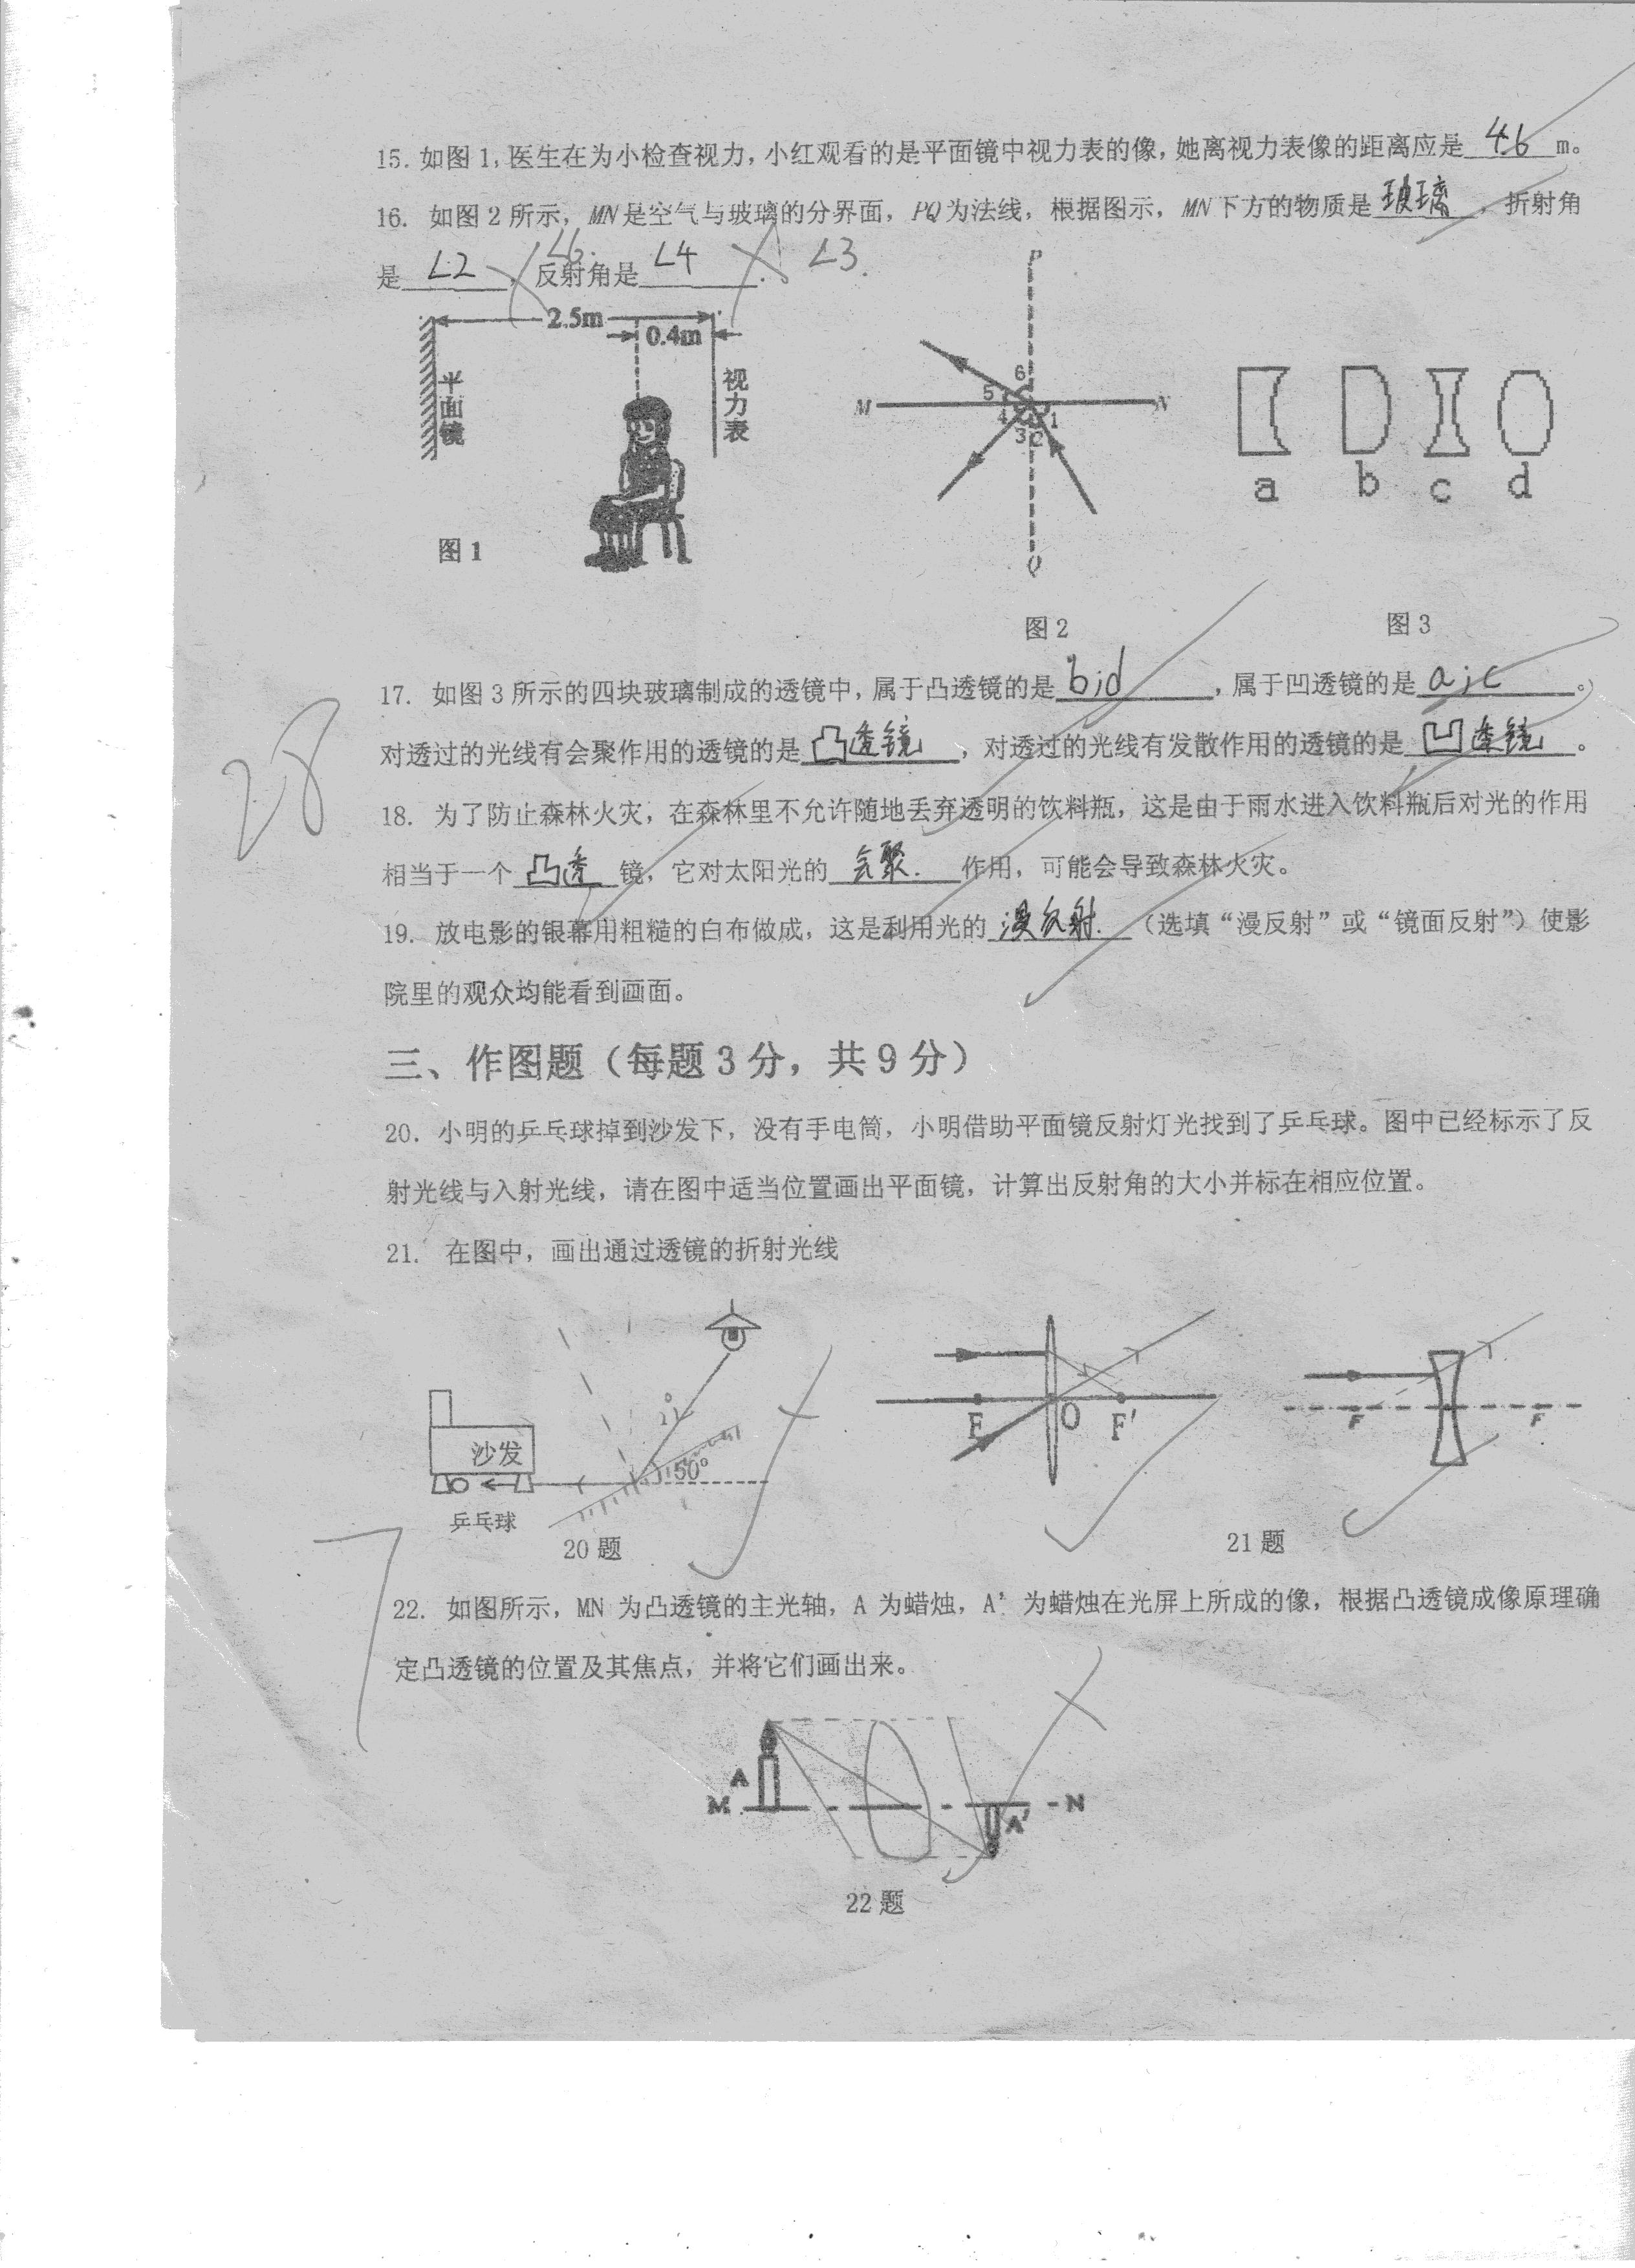 15. 如图1, 医生在为小检查视力, 小红观看的是平面镜中视力表的像, 她离视力表像的距离应是 4.6 m。
16. 如图2所示, MN是空气与玻璃的分界面, PQ为法线, 根据图示, MN下方的物质是 玻璃 , 折射角
是 ∠2 , ∠6. 反射角是 ∠4 . ∠3.
2.5m
0.4m
平面镜
视力表
图1
P
M
N
6
5
4
3
2
1
Q
图2
a b c d
图3
17. 如图3所示的四块玻璃制成的透镜中, 属于凸透镜的是 b;d , 属于凹透镜的是 a;c 。
28
对透过的光线有会聚作用的透镜的是 凸透镜 , 对透过的光线有发散作用的透镜的是 凹透镜 。
18. 为了防止森林火灾, 在森林里不允许随地丢弃透明的饮料瓶, 这是由于雨水进入饮料瓶后对光的作用
相当于一个 凸透 镜, 它对太阳光的 会聚. 作用, 可能会导致森林火灾。
19. 放电影的银幕用粗糙的白布做成, 这是利用光的 漫反射. (选填“漫反射”或“镜面反射”) 使影
院里的观众均能看到画面。
三、作图题（每题3分，共9分）
20. 小明的乒乓球掉到沙发下, 没有手电筒, 小明借助平面镜反射灯光找到了乒乓球。图中已经标示了反
射光线与入射光线, 请在图中适当位置画出平面镜, 计算出反射角的大小并标在相应位置。
21. 在图中, 画出通过透镜的折射光线
沙发
50°
乒乓球
20题
F
O
F'
F
F
21题
7
22. 如图所示, MN 为凸透镜的主光轴, A 为蜡烛, A' 为蜡烛在光屏上所成的像, 根据凸透镜成像原理确
定凸透镜的位置及其焦点, 并将它们画出来。
A
M
N
A'
22题